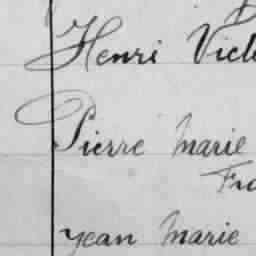 Henri Vict
Pierre Marie
Fra
Jean Marie